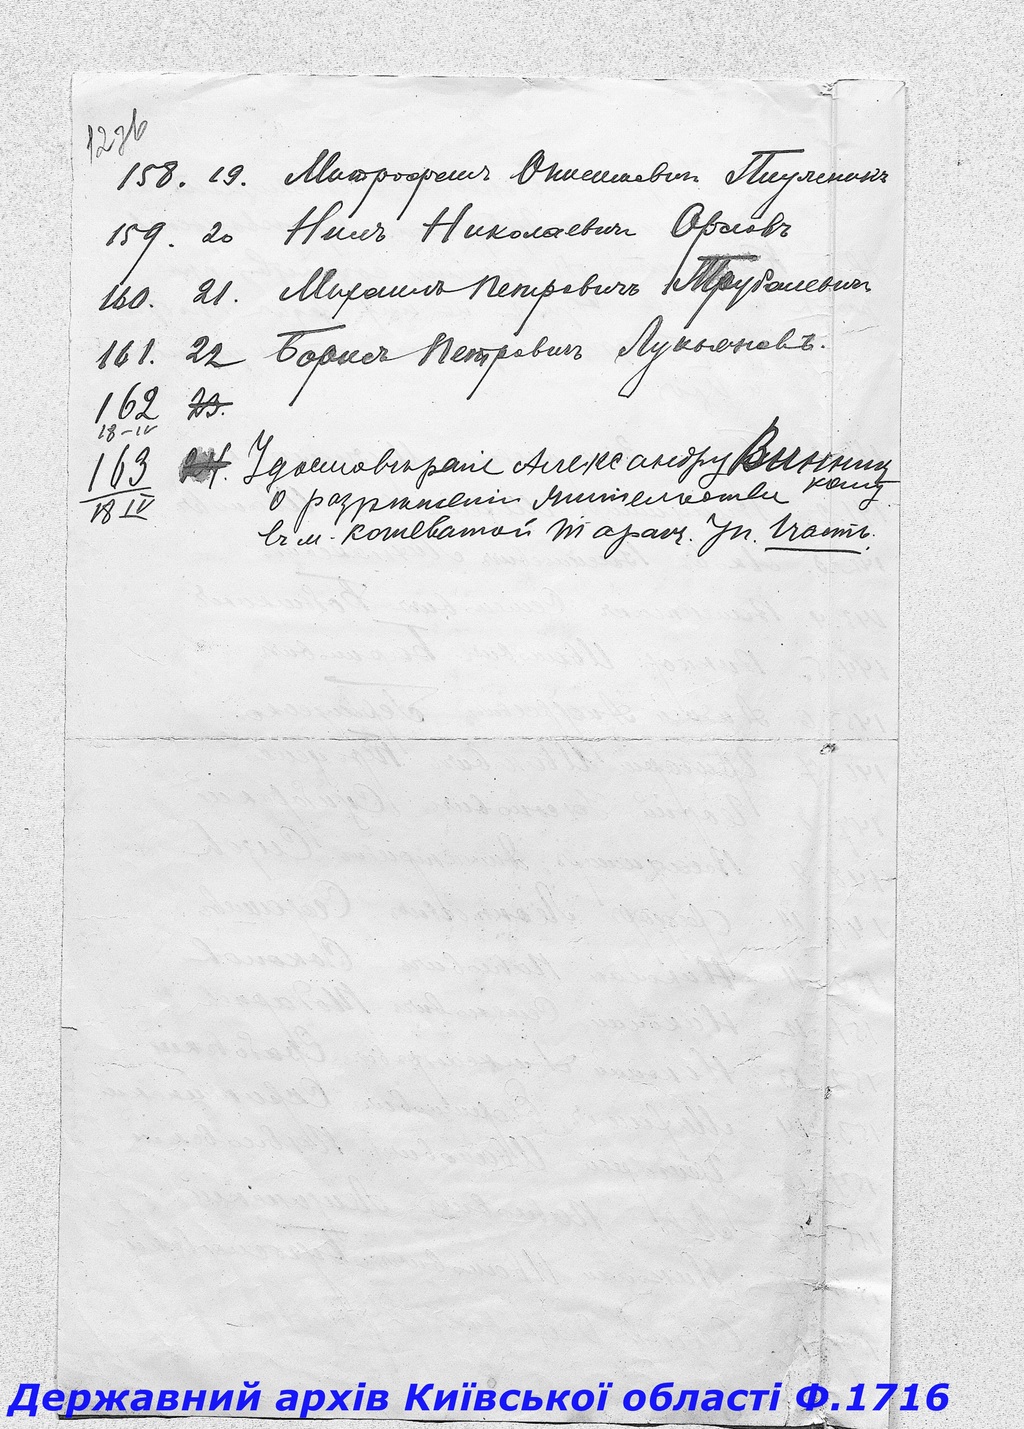 12зв
158. 19. Митрофанъ Онисимович Пиуленокъ
159. 20 Нилъ Николаевич Орловъ
160. 21. Михаилъ Петровичъ Трубалевич
161. 22 Борисъ Петрович Лукьяновъ.
162 23.
18-IV
163 24. Удостоверение Александру Винниц
кому
18 IV о разрешении жительства
въ м. Кошеватой Таращ. Уп. Часть.
Державний архів Київської області Ф.1716